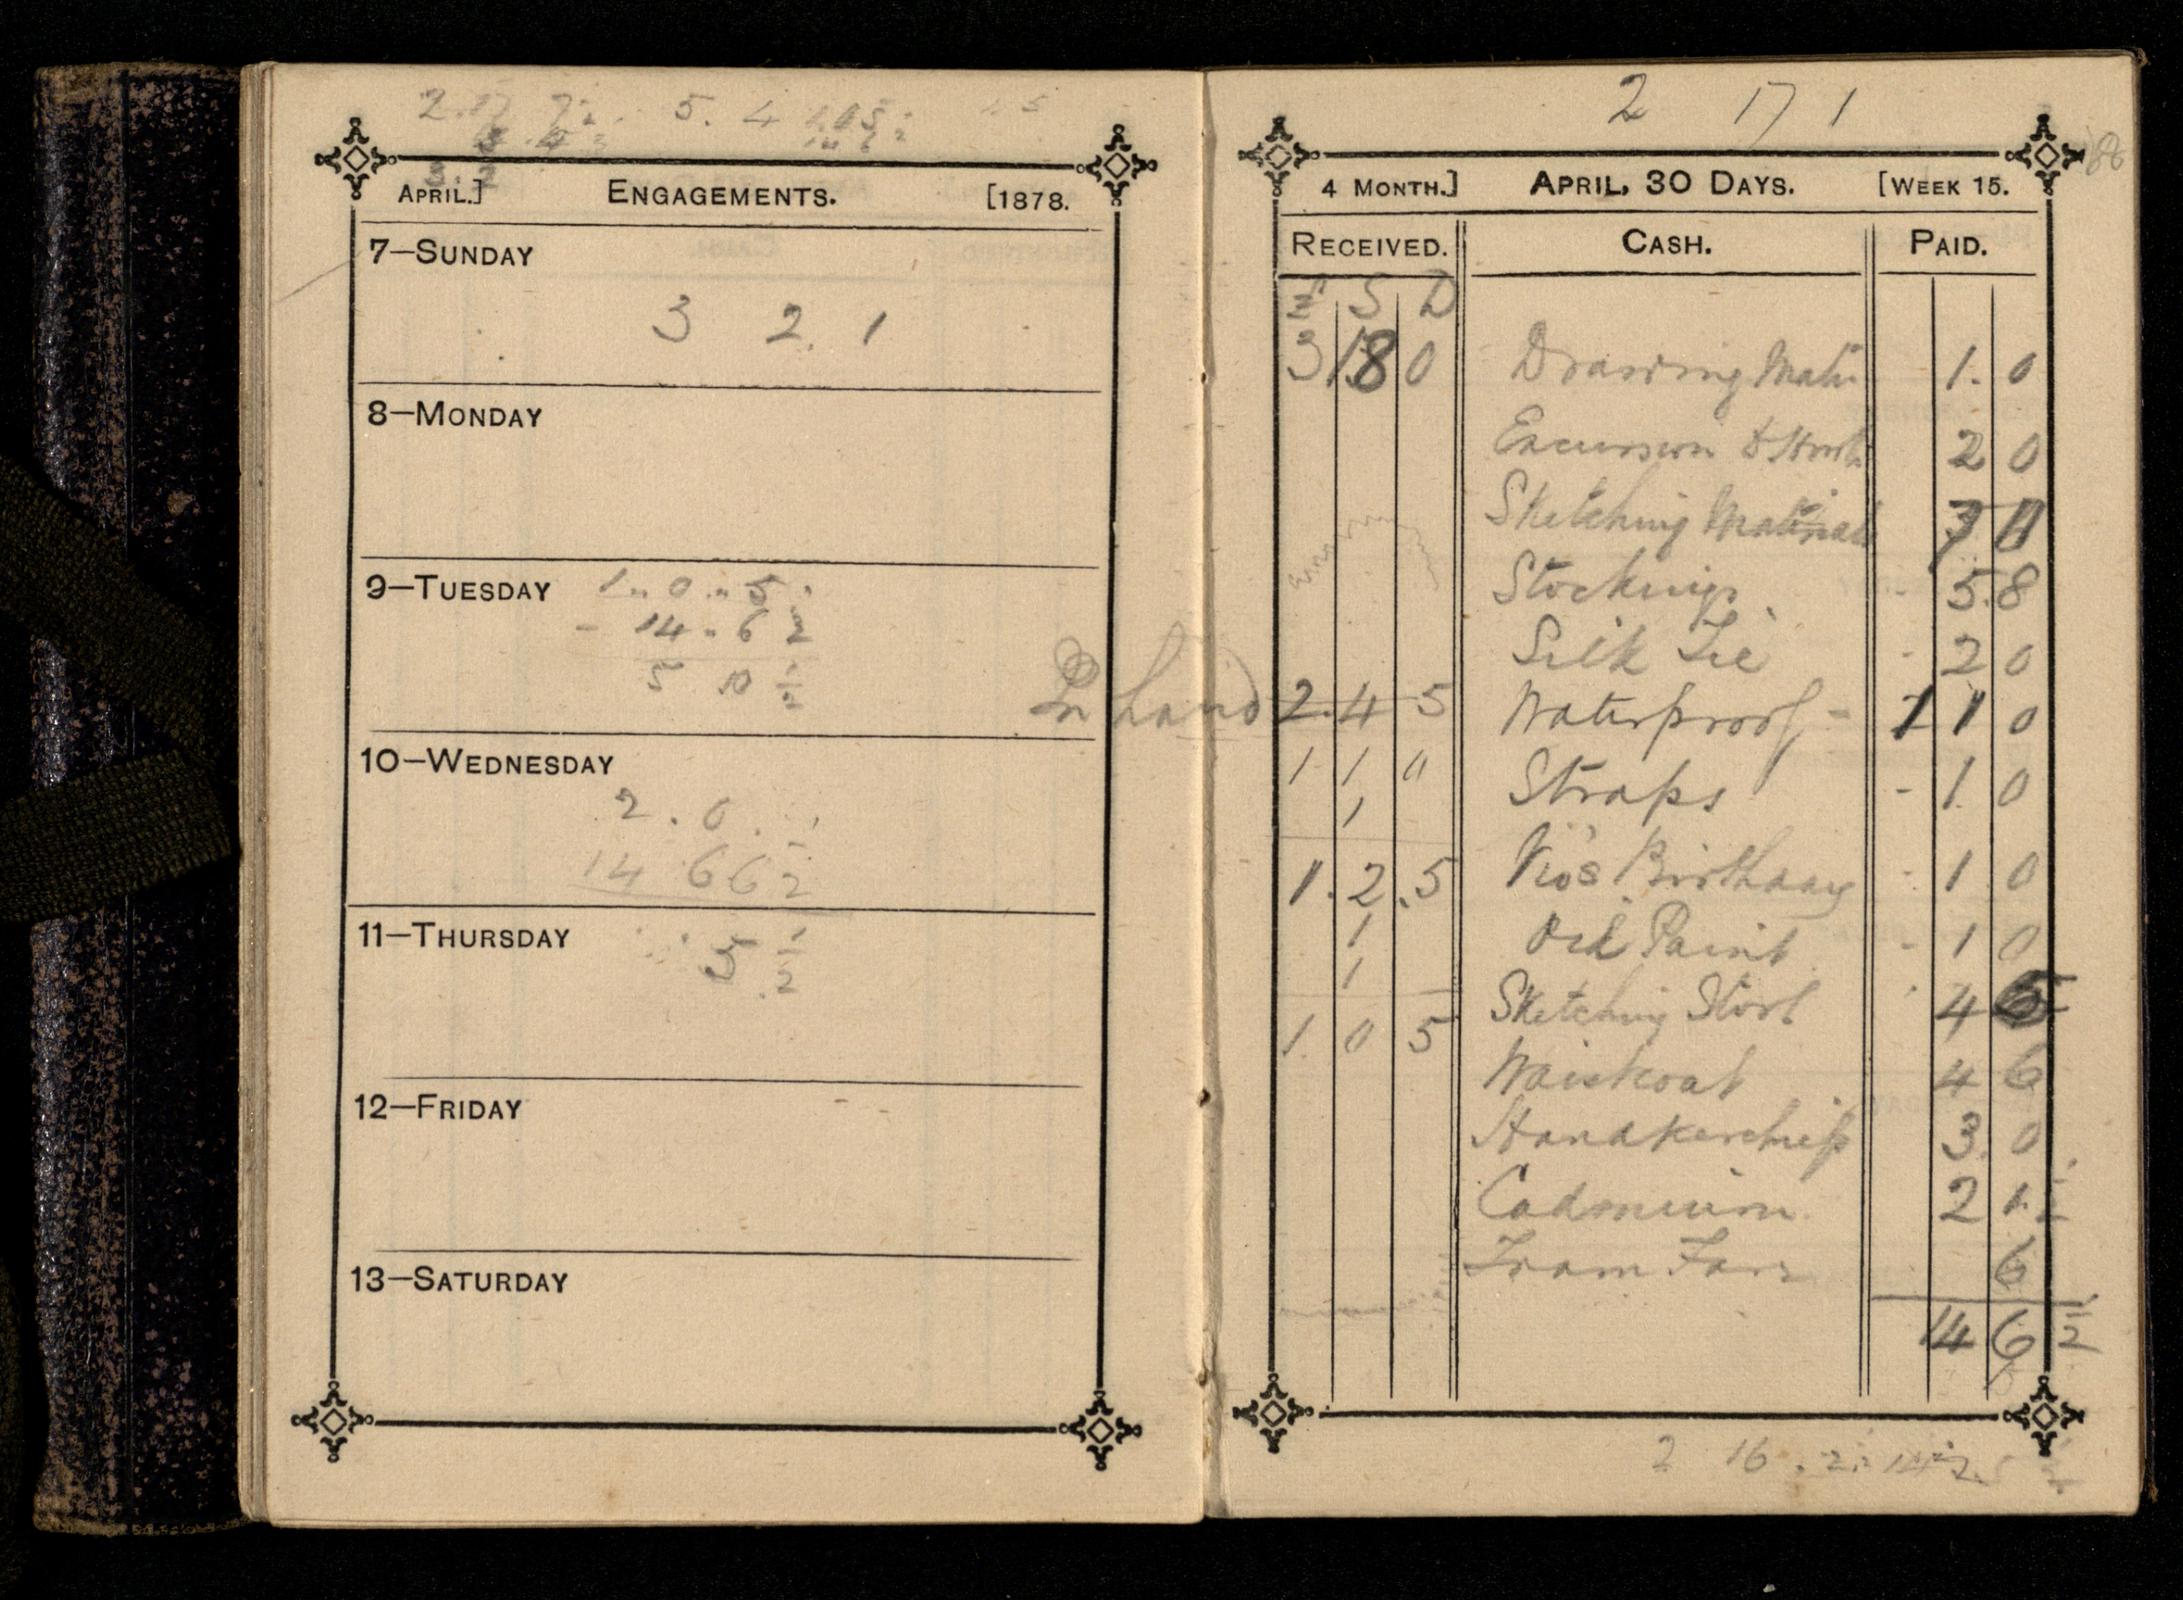 2 . 17 7
5 . 4
APRIL.] ENGAGEMENTS. [1878.
7—SUNDAY
3 2 . 1
8—MONDAY
9—TUESDAY 1 .. 0 .. 5
- 14 . 6 ½
5 10 ½
In hand
10—WEDNESDAY
2 . 0
14 6 6 ½
11—THURSDAY
5 ½
12—FRIDAY
13—SATURDAY
2 17 1
88
4 MONTH.] APRIL, 30 DAYS. [WEEK 15.
RECEIVED. CASH. PAID.
£ S D
3 18 0 Drawing Mate 1. 0
Excursion 2 0
Sketching Materials
Stockings 5.8
Silk Tie - 2 0
2. 4 5 Waterproof - 1 1 0
1 1 0
Straps - 1. 0
1
1. 2. 5 Vio's Birthday - 1 0
1 Oil Paint - 1 0
1
Sketching Stool 4
1. 0 5
Waistcoat 4 6
Handkerchiefs 3. 0
Cadmium. 2 1. ½
Tram Fare 6
14 6 ½
2 16 .